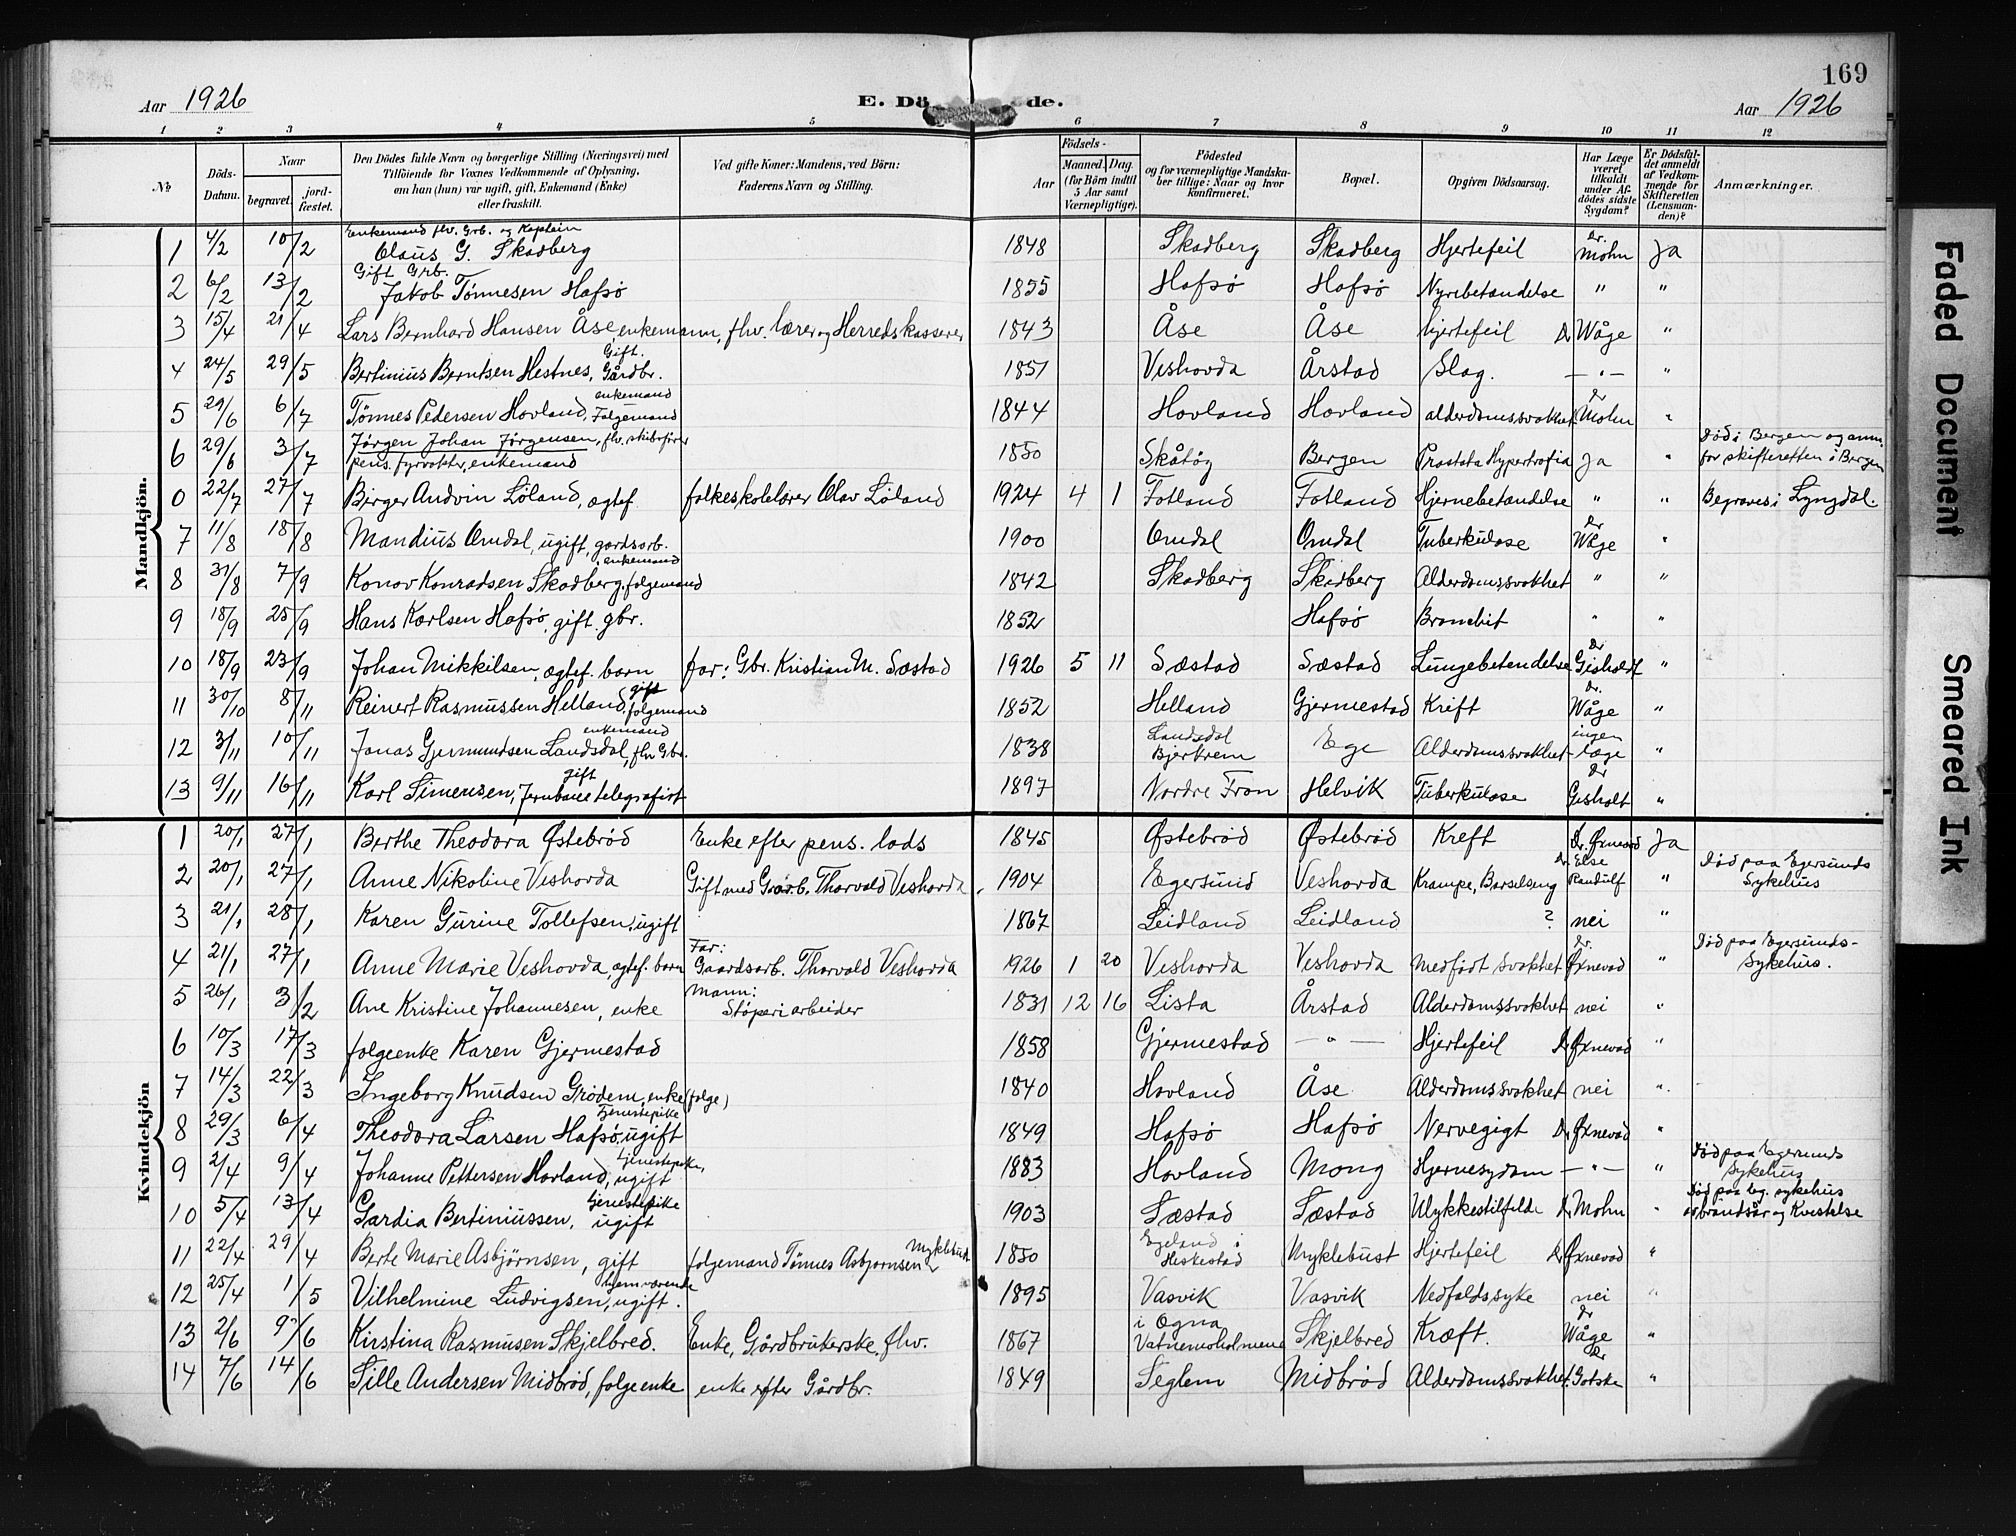 169
Aar 1926 E. Dö de. Aar 1926
1 2 3 4 5 6 7 8 9 10 11 12
№ Döds-Datum. Naar begravet. jordfæstet. Den Dödes fulde Navn og borgerlige Stilling (Næringsvei) med Tilföiende for Voxnes Vedkommende af Oplysning, om han (hun) var ugift, gift, Enkemand (Enke) eller fraskilt. Ved gifte Koner: Mandens, ved Börn: Faderens Navn og Stilling. Födsels- Aar Maaned. Dag. (for Börn indtil 5 Aar samt Værnepligtige). Födested og for værnepligtige Mandskaber tillige: Naar og hvor konfirmeret. Bopæl. Opgiven Dödsaarsag. Har Læge været tilkaldt under Afdödes sidste Sygdom? Er Dödsfaldet anmeldt af Vedkommende for Skifteretten (Lensmanden)? Anmærkninger.
Mandkjön.
1 4/2 10/2 Enkemand flv. Grb. og Kaptein Olaus G. Skadberg 1848 Skadberg Skadberg Hjertefeil Dr. Mohn Ja
2 6/2 13/2 Gift Grb. Jakob Tønnesen Hafsø 1855 Hafsø Hafsø Nyrebetændelse " "
3 15/4 21/4 Lars Bernhard Hansen Åse, enkemann, fhv. lærer og Herredskasserer 1843 Åse Åse hjertefeil Dr Wåge "
4 24/5 29/5 Bertinius Berntsen Hestnes, Gift. Gårdbr. 1851 Veshovda Årstad Slag. — " — "
5 29/6 6/7 Tønnes Pedersen Hovland, enkemand Følgemand 1844 Hovland Hovland alderdomssvakhet Dr Mohn "
6 29/6 3/7 Jørgen Johan Jørgensen, flv. skibsfører pens. fyrvokter, enkemand 1850 Skåtøy Bergen Prostata Hypertrofia Ja " Död i Bergen og anm. for skifteretten i Bergen
0 22/7 27/7 Birger Andvin Løland, ægtef. folkeskolelærer Olav Løland 1924 4 1 Fotland Fotland Hjernebetændelse " " Begraves i Lyngdal.
7 11/8 18/8 Mandius Omdal, ugift, gardsarb. 1900 Omdal Omdal Tuberkulose Dr Wåge "
8 31/8 7/9 Konov Konradsen Skadberg, enkemand følgemand 1842 Skadberg Skadberg Alderdomssvakhet " "
9 18/9 25/9 Hans Karlsen Hafsø, gift. gbr. 1852 Hafsø Bronchit " "
10 18/9 23/9 Johan Mikkilsen, ægtef. barn far: Gbr. Kristian M. Sæstad 1926 5 11 Sæstad Sæstad Lungebetendelse Dr Gisholdt "
11 30/10 8/11 Reinert Rasmussen Helland, gift følgemand 1852 Helland Gjermestad Kreft Dr. Wåge "
12 3/11 10/11 Jonas Gjermundsen Landsdal, enkemand flv Gbr. 1838 Landsdal Bjerkrem Ege Alderdomssvakhet ingen læge "
13 9/11 16/11 Karl Simensen, gift Jernbanetelegrafist 1897 Nordre Fron Helvik Tuberkulose dr Gisholt "
Kvindekjön
1 20/1 27/1 Berthe Theodora Østebrød Enke efter pens. lods 1845 Østebrød Østebrød Kreft Dr. Øxnevad Ja
2 20/1 27/1 Anne Nikoline Veshovda Gift med Grarb. Thorvald Veshovda 1904 Egersund Veshovda Krampe, Barselseng Dr Else Randulf " Död paa Egersunds Sykehus
3 21/1 28/1 Karen Gurine Tollefsen, ugift 1867 Leidland Leidland ? nei "
4 21/1 27/1 Anne Marie Veshovda, ægtef. barn Far: Gaardsarb. Thorvald Veshovda 1926 1 20 Veshovda Veshovda medfødt svakhet Dr. Øxnevad " Död paa Egersunds-Sykehus.
5 26/1 3/2 Ane Kristine Johannesen, enke Mann: Støperiarbeider 1831 12 16 Lista Årstad Alderdomssvakhet nei "
6 10/3 17/3 følgeenke Karen Gjermestad 1858 Gjermestad — " — Hjertefeil Dr Øxnevad "
7 14/3 22/3 Ingeborg Knudsen Grødem, enke (følge) 1840 Hovland Åse Alderdomssvakhet nei "
8 29/3 6/4 Theodora Larsen Hafsø, Tjenestepike ugift 1849 Hafsø Hafsø Nervegigt Dr Øxnevad "
9 2/4 9/4 Johanne Pettersen Hovland, tjenestepike, ugift 1883 Hovland Mong Hjernesygdom — " — " Död paa Egersunds Sykehus
10 5/4 13/4 Gardia Bertiniussen, tjenestepike ugift 1903 Sæstad Sæstad Ulykkestilfelde Dr Mohn " Död paa Eg. sykehus av brandsår og Kvestelse
11 22/4 29/4 Berte Marie Asbjörnsen, gift følgemand Tönnes Asbjørnsen Myklebust 1850 Egeland i Heskestad Myklebust Hjertefeil Dr Øxnevad "
12 25/4 1/5 Vilhelmine Ludvigsen, hjemværende ugift. 1895 Vasvik Vasvik Nedfaldssyke nei "
13 2/6 9/6 Kirstina Rasmusen Skjelbred. Enke, Gårdbrukerske, flv. 1867 i Ogna Vatnemoholmene Skjelbred Kræft. dr Wåge "
14 7/6 14/6 Sille Andersen Midbrød, følgeenke enke efter Gårdbr. 1849 Seglem Midbrød Alderdomssvakhet dr Gotske "
Faded Document
Smeared Ink